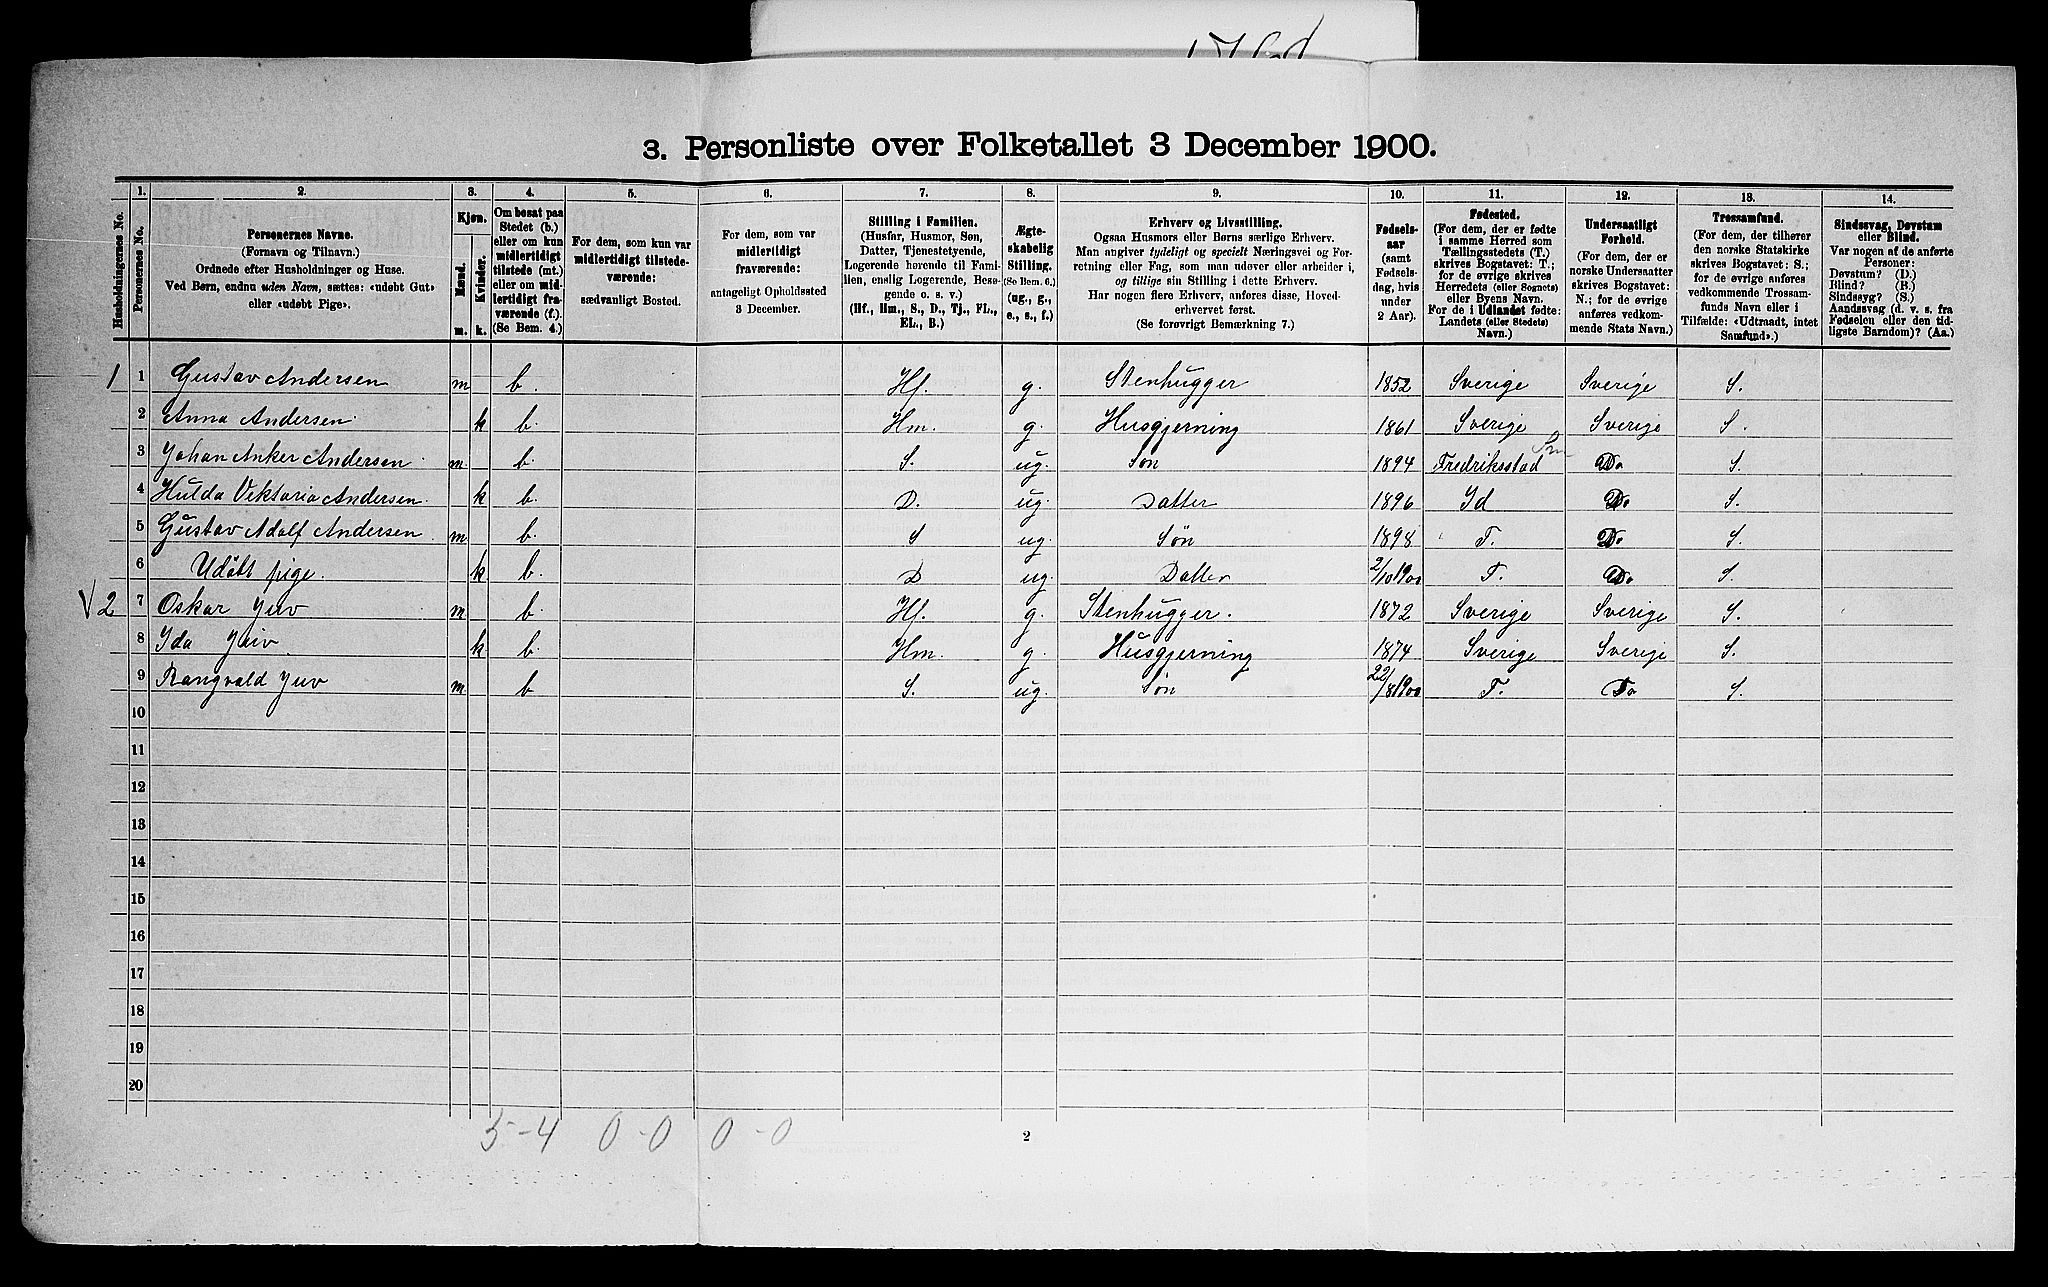 3. Personliste over Folketallet 3 December 1900.
1. 2. 3. 4. 5. 6. 7. 8. 9. 10. 11. 12. 13. 14.
Husholdningernes No.
Personernes No.
Personernes Navne.
(Fornavn og Tilnavn.)
Ordnede efter Husholdninger og Huse.
Ved Børn, endnu uden Navn, sættes: «udøbt Gut»
eller «udøbt Pige».
Kjøn.
Mænd.
Kvinder.
m. k.
Om bosat paa
Stedet (b.)
eller om kun
midlertidigt
tilstede (mt.)
eller om mid-
lertidigt fra-
værende (f.)
(Se Bem. 4.)
For dem, som kun var
midlertidigt tilstede-
værende:
sædvanligt Bosted.
For dem, som var
midlertidigt
fraværende:
antageligt Opholdssted
3 December.
Stilling i Familien.
(Husfar, Husmor, Søn,
Datter, Tjenestetyende,
Logerende hørende til Fami-
lien, enslig Logerende, Besø-
gende o. s. v.)
(Hf., Hm., S., D., Tj., FL.,
EL., B.)
Ægte-
skabelig
Stilling.
(Se Bem. 6.)
(ug., g.,
e., s., f.)
Erhverv og Livsstilling.
Ogsaa Husmors eller Børns særlige Erhverv.
Man angiver tydeligt og specielt Næringsvei og For-
retning eller Fag, som man udøver eller arbeider i,
og tillige sin Stilling i dette Erhverv.
Har nogen flere Erhverv, anføres disse, Hoved-
erhvervet først.
(Se forøvrigt Bemærkning 7.)
Fødsels-
aar
(samt
Fødsels-
dag, hvis
under
2 Aar).
Fødested.
(For dem, der er fødte
i samme Herred som
Tællingsstedets (T.)
skrives Bogstavet: T.;
for de øvrige skrives
Herredets (eller Sognets)
eller Byens Navn.
For de i Udlandet fødte:
Landets (eller Stedets)
Navn.)
Undersaatligt
Forhold.
(For dem, der er
norske Undersaatter
skrives Bogstavet:
N.; for de øvrige
anføres vedkom-
mende Stats Navn.)
Trossamfund.
(For dem, der tilhører
den norske Statskirke
skrives Bogstavet: S.;
for de øvrige anføres
vedkommende Trossam-
funds Navn eller i
Tilfælde: «Udtraadt, intet
Samfund».)
Sindssvag, Døvstum
eller Blind.
Var nogen af de anførte
Personer:
Døvstum? (D.)
Blind? (B.)
Sindssyg? (S.)
Aandssvag (d. v. s. fra
Fødselen eller den tid-
ligste Barndom)? (Aa.)
1 1 Gustav Andersen m b. Hf. g. Stenhugger 1852 Sverige Sverige S.
2 Anna Andersen k b. Hm. g. Husgjerning 1861 Sverige Sverige S.
3 Johan Anker Andersen m. b. S. ug. Søn 1894 Fredriksstad Do S.
4 Hulda Vektoria Andersen. k b. D. ug. Datter 1896 Id Do S.
5 Gustav Adolf Andersen m b. S ug. Søn 1898 T. Do S.
6 Udöbt pige. k b. D ug. Datter 2/10 1900 T. Do S.
V 2 7 Oskar Juv m b. Hf. g. Stenhugger. 1872 Sverige Sverige S.
8 Ida Juv. k b. Hm. g. Husgjerning 1874 Sverige Sverige S.
9 Rangvald Juv m. b S. ug. Søn 22/8 1900 T. Do S.
10
11
12
13
14
15
16
17
18
19
20
5-4 0-0 0-0
2